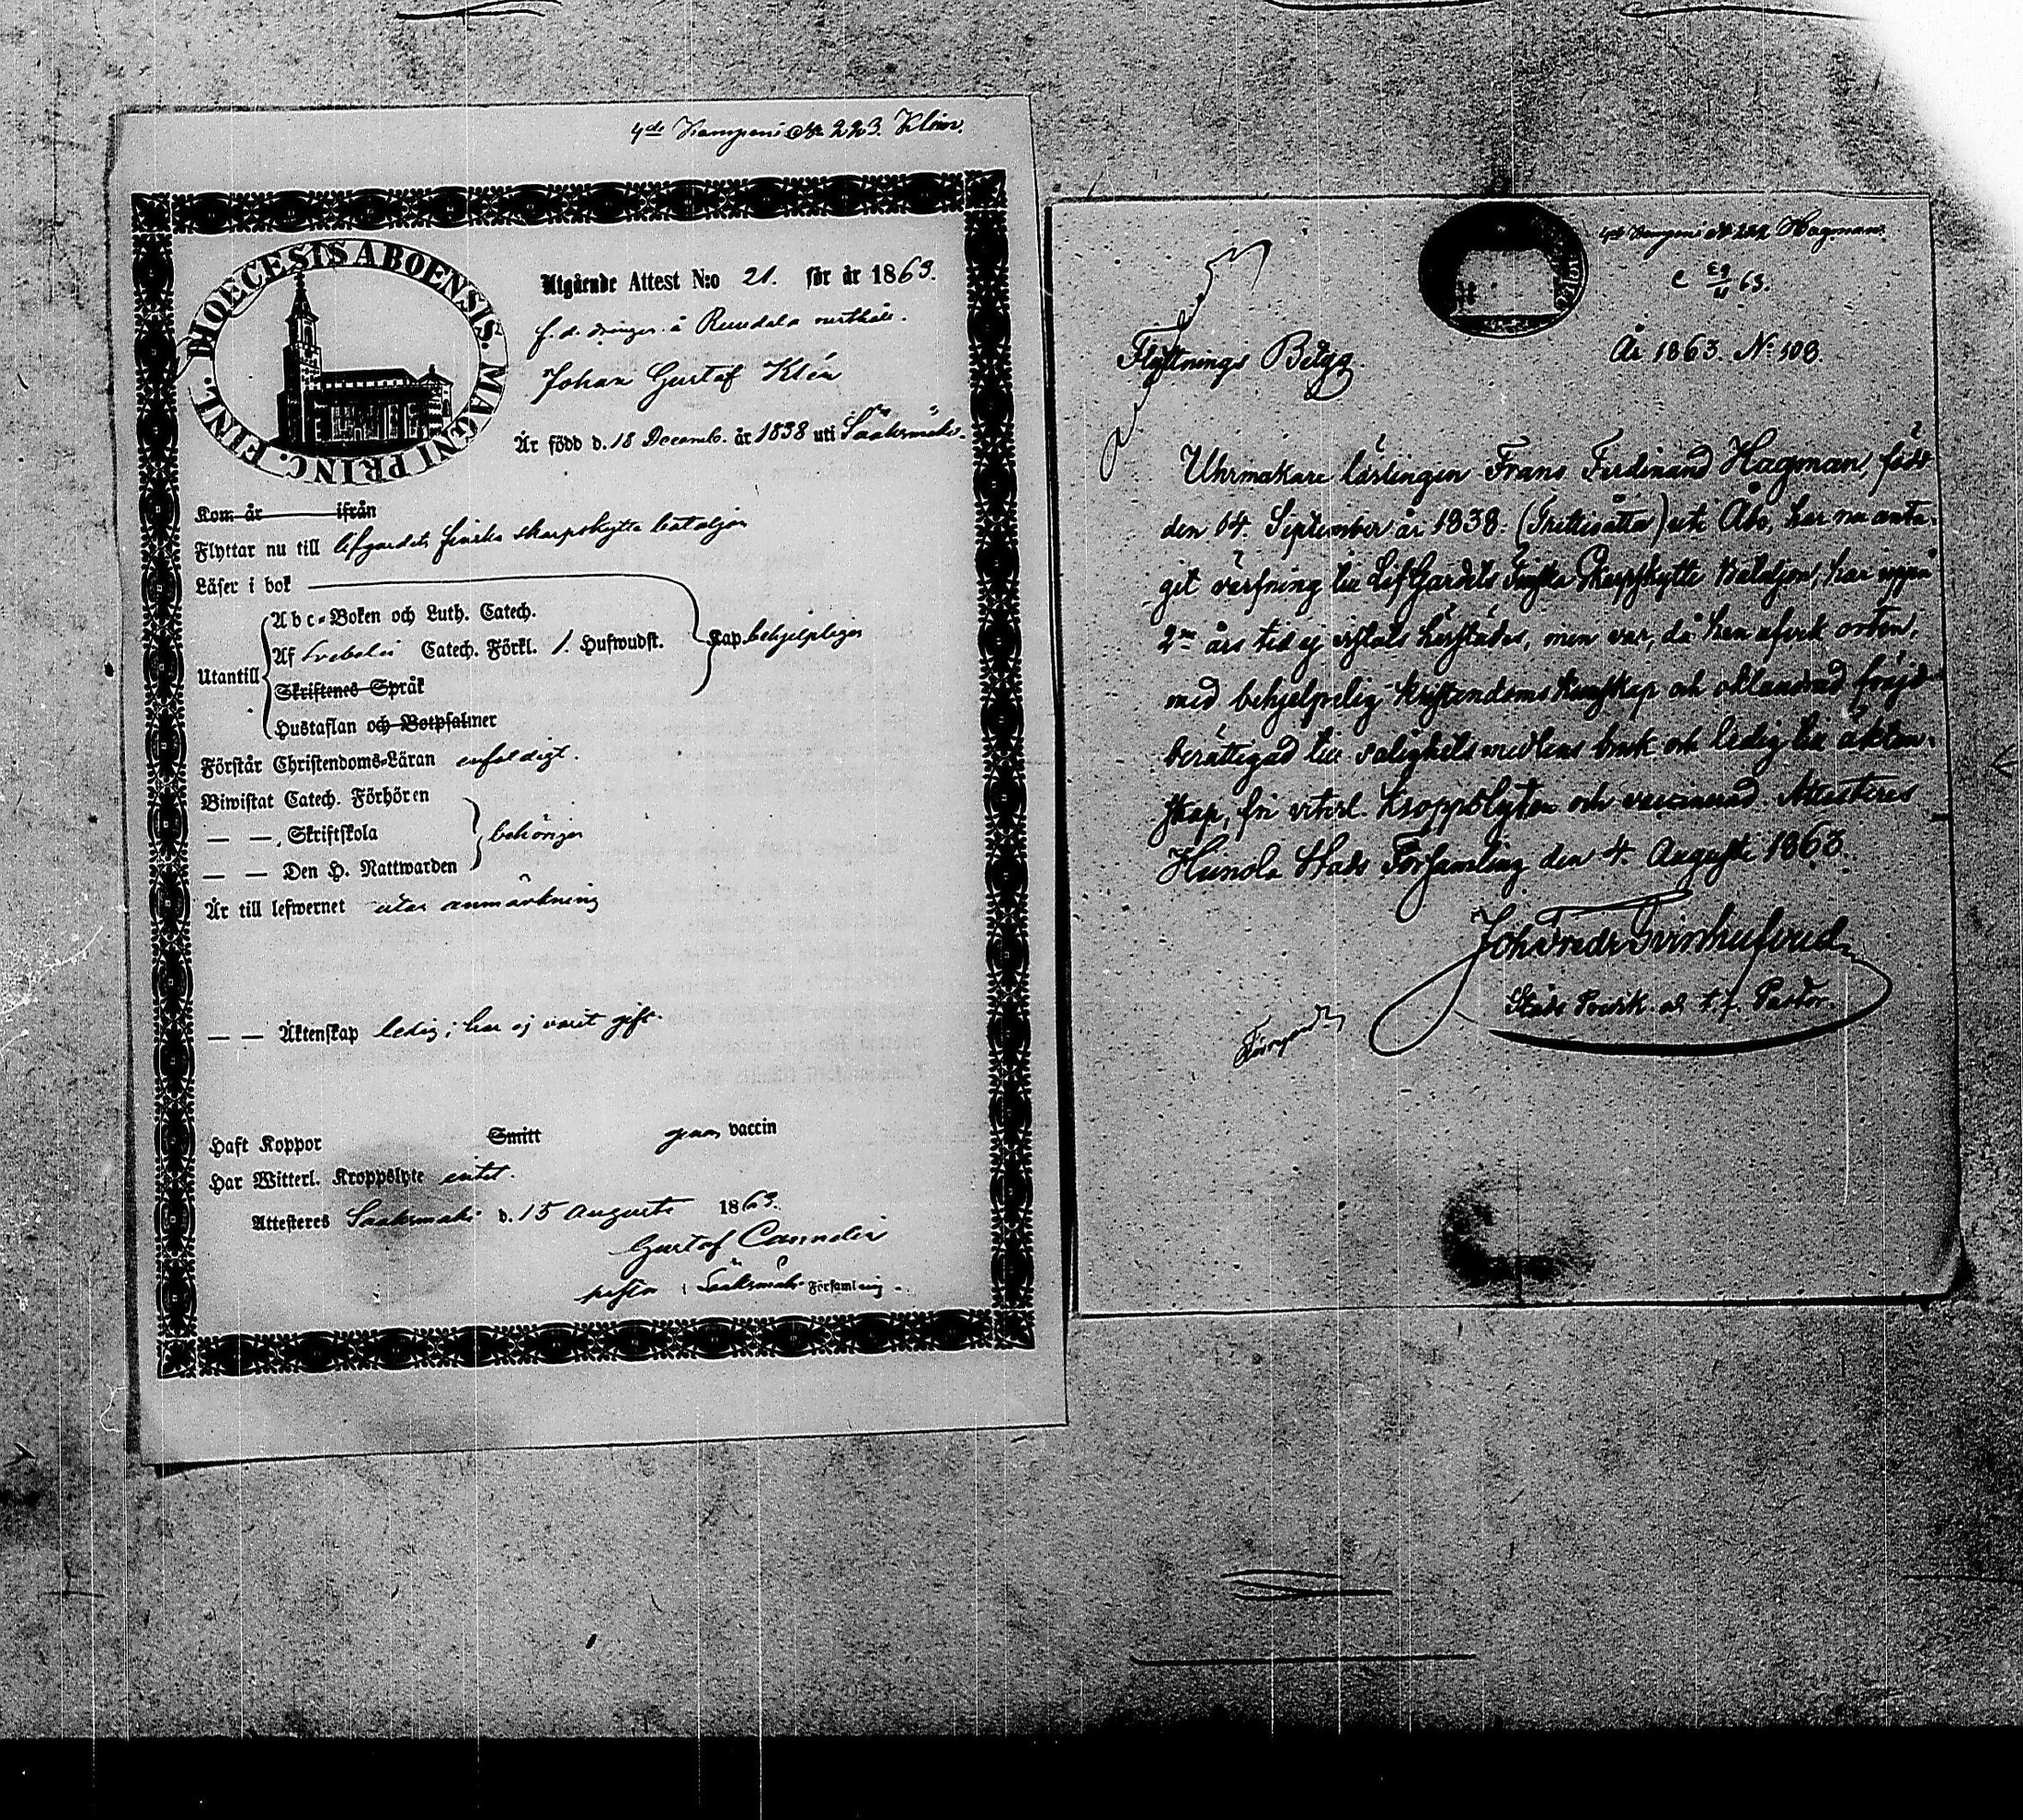 4de Kompani No 223. Klén.
DIOECESIS ABOENSIS. MAGNI PRINC. FINL.
Utgående Attest N:o 21. för år 1863.
f. d. drängen å Rundala
Johan Gustaf Klén
Är född d. 18 Decemb. år 1838 uti Sääksmäki.
Kom år ifrån
Flyttar nu till lifgardets finska skarpskytte bataljon
Läser i bok
Abc-Boken och Luth. Catech.
Utantill Af Svebelii Catech. Förkl. 1. Hufwudst. Kap behjelpligen
Skriftenes Språk
Hustaflan och Botpsalmer
Förstår Christendoms-Läran enfaldigt.
Biwistat Catech. Förhören
— — Skriftskola behörigen
— — Den H. Nattwarden
Är till lefwernet utan anmärkning
— — Äktenskap ledig; har ej varit gift.
Haft Koppor Smitt genom vaccin
Har Witterl. Kroppslyte intet.
Attesteres Sääksmäki d. 15 Augusti 1863.
Gustaf
i Sääksmäki Församling
4de Kompani No 222 Hagman.
63.
År 1863. No 108.
Flyttnings Betyg.
Uhrmakare lärlingen Frans Ferdinand Hagman, född
den 14 September år 1838. (Trettioåtta) uti Åbo, har nu anta-
git värfning till Lif Gardets Finska Skarpskytte Bataljon, har uppå
2ne års tid ej vistats härstädes, men var, då han afvek orten,
med behjelpelig kristendoms kunskap och oklandrad fräjd
berättigad till salighetsmedlens bruk och ledig till äkten-
skap, fri viterl. kroppslyten och vaccinerad. Attesteres
Heinola Stads Församling den 4. Augusti 1863.
Joh Fredr Svinhufvud
Stads Predik. och t. f. Pastor.